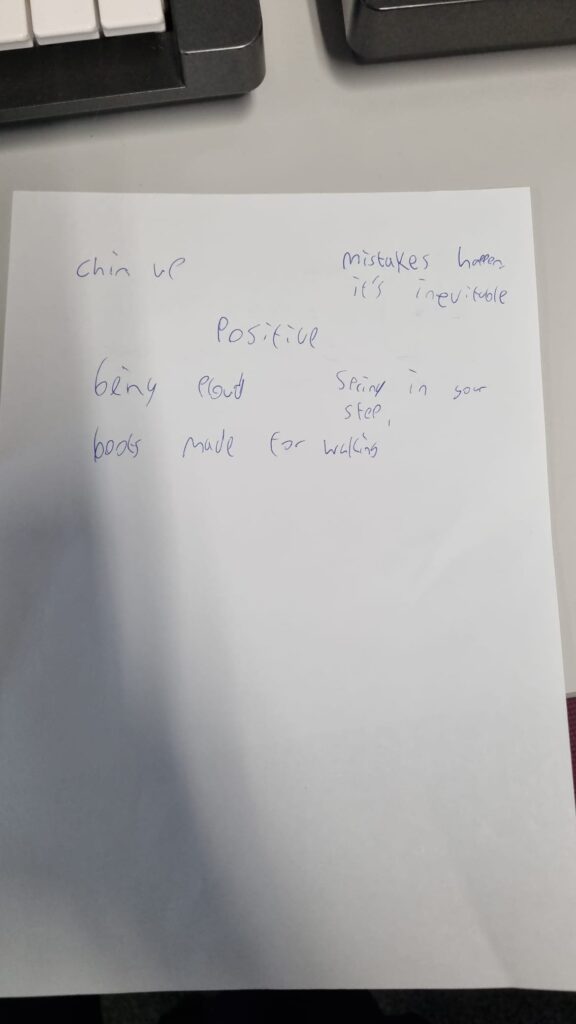 chin up
mistakes happen
it's inevitable
Positive
being proud
spring in your
step,
boots made for walking